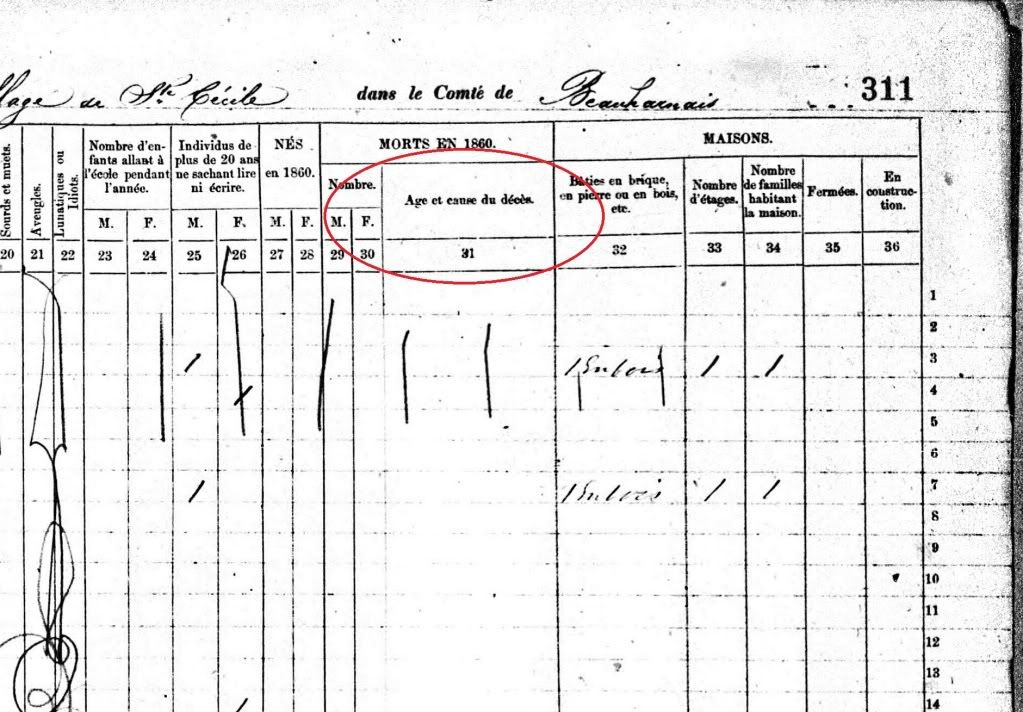 llage de Ste Cécile dans le Comté de Beauharnais 311
Sourds et muets.
Aveugles.
Lunatiques ou Idiots.
Nombre d'en-
fants allant à
l'école pendant
l'année.
Individus de
plus de 20 ans
ne sachant lire
ni écrire.
NÉS
en 1860.
MORTS EN 1860.
Nombre.
Age et cause du décès.
MAISONS.
Bâties en brique,
en pierre ou en bois,
etc.
Nombre
d'étages.
Nombre
de familles
habitant
la maison.
Fermées.
En
construc-
tion.
M. F. M. F. M. F. M. F.
20 21 22 23 24 25 26 27 28 29 30 31 32 33 34 35 36
1
2
/ 1 En bois / / 3
/ 4
5
6
/ 1 En bois / / 7
8
9
10
11
12
13
/ 14